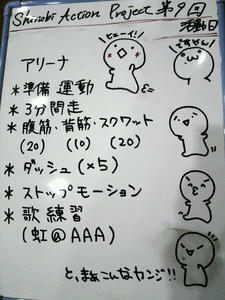 Shinobi Action Project 第9回
活動日
ヒューイ!
ですやん
アリーナ
* 準備運動
* 3分間走
* 腹筋、背筋、スクワット
(20) (10) (20)
* ダッシュ (×5)
* ストップモーション
* 歌練習
(虹@AAA)
と、まぁこんなカンジ!!